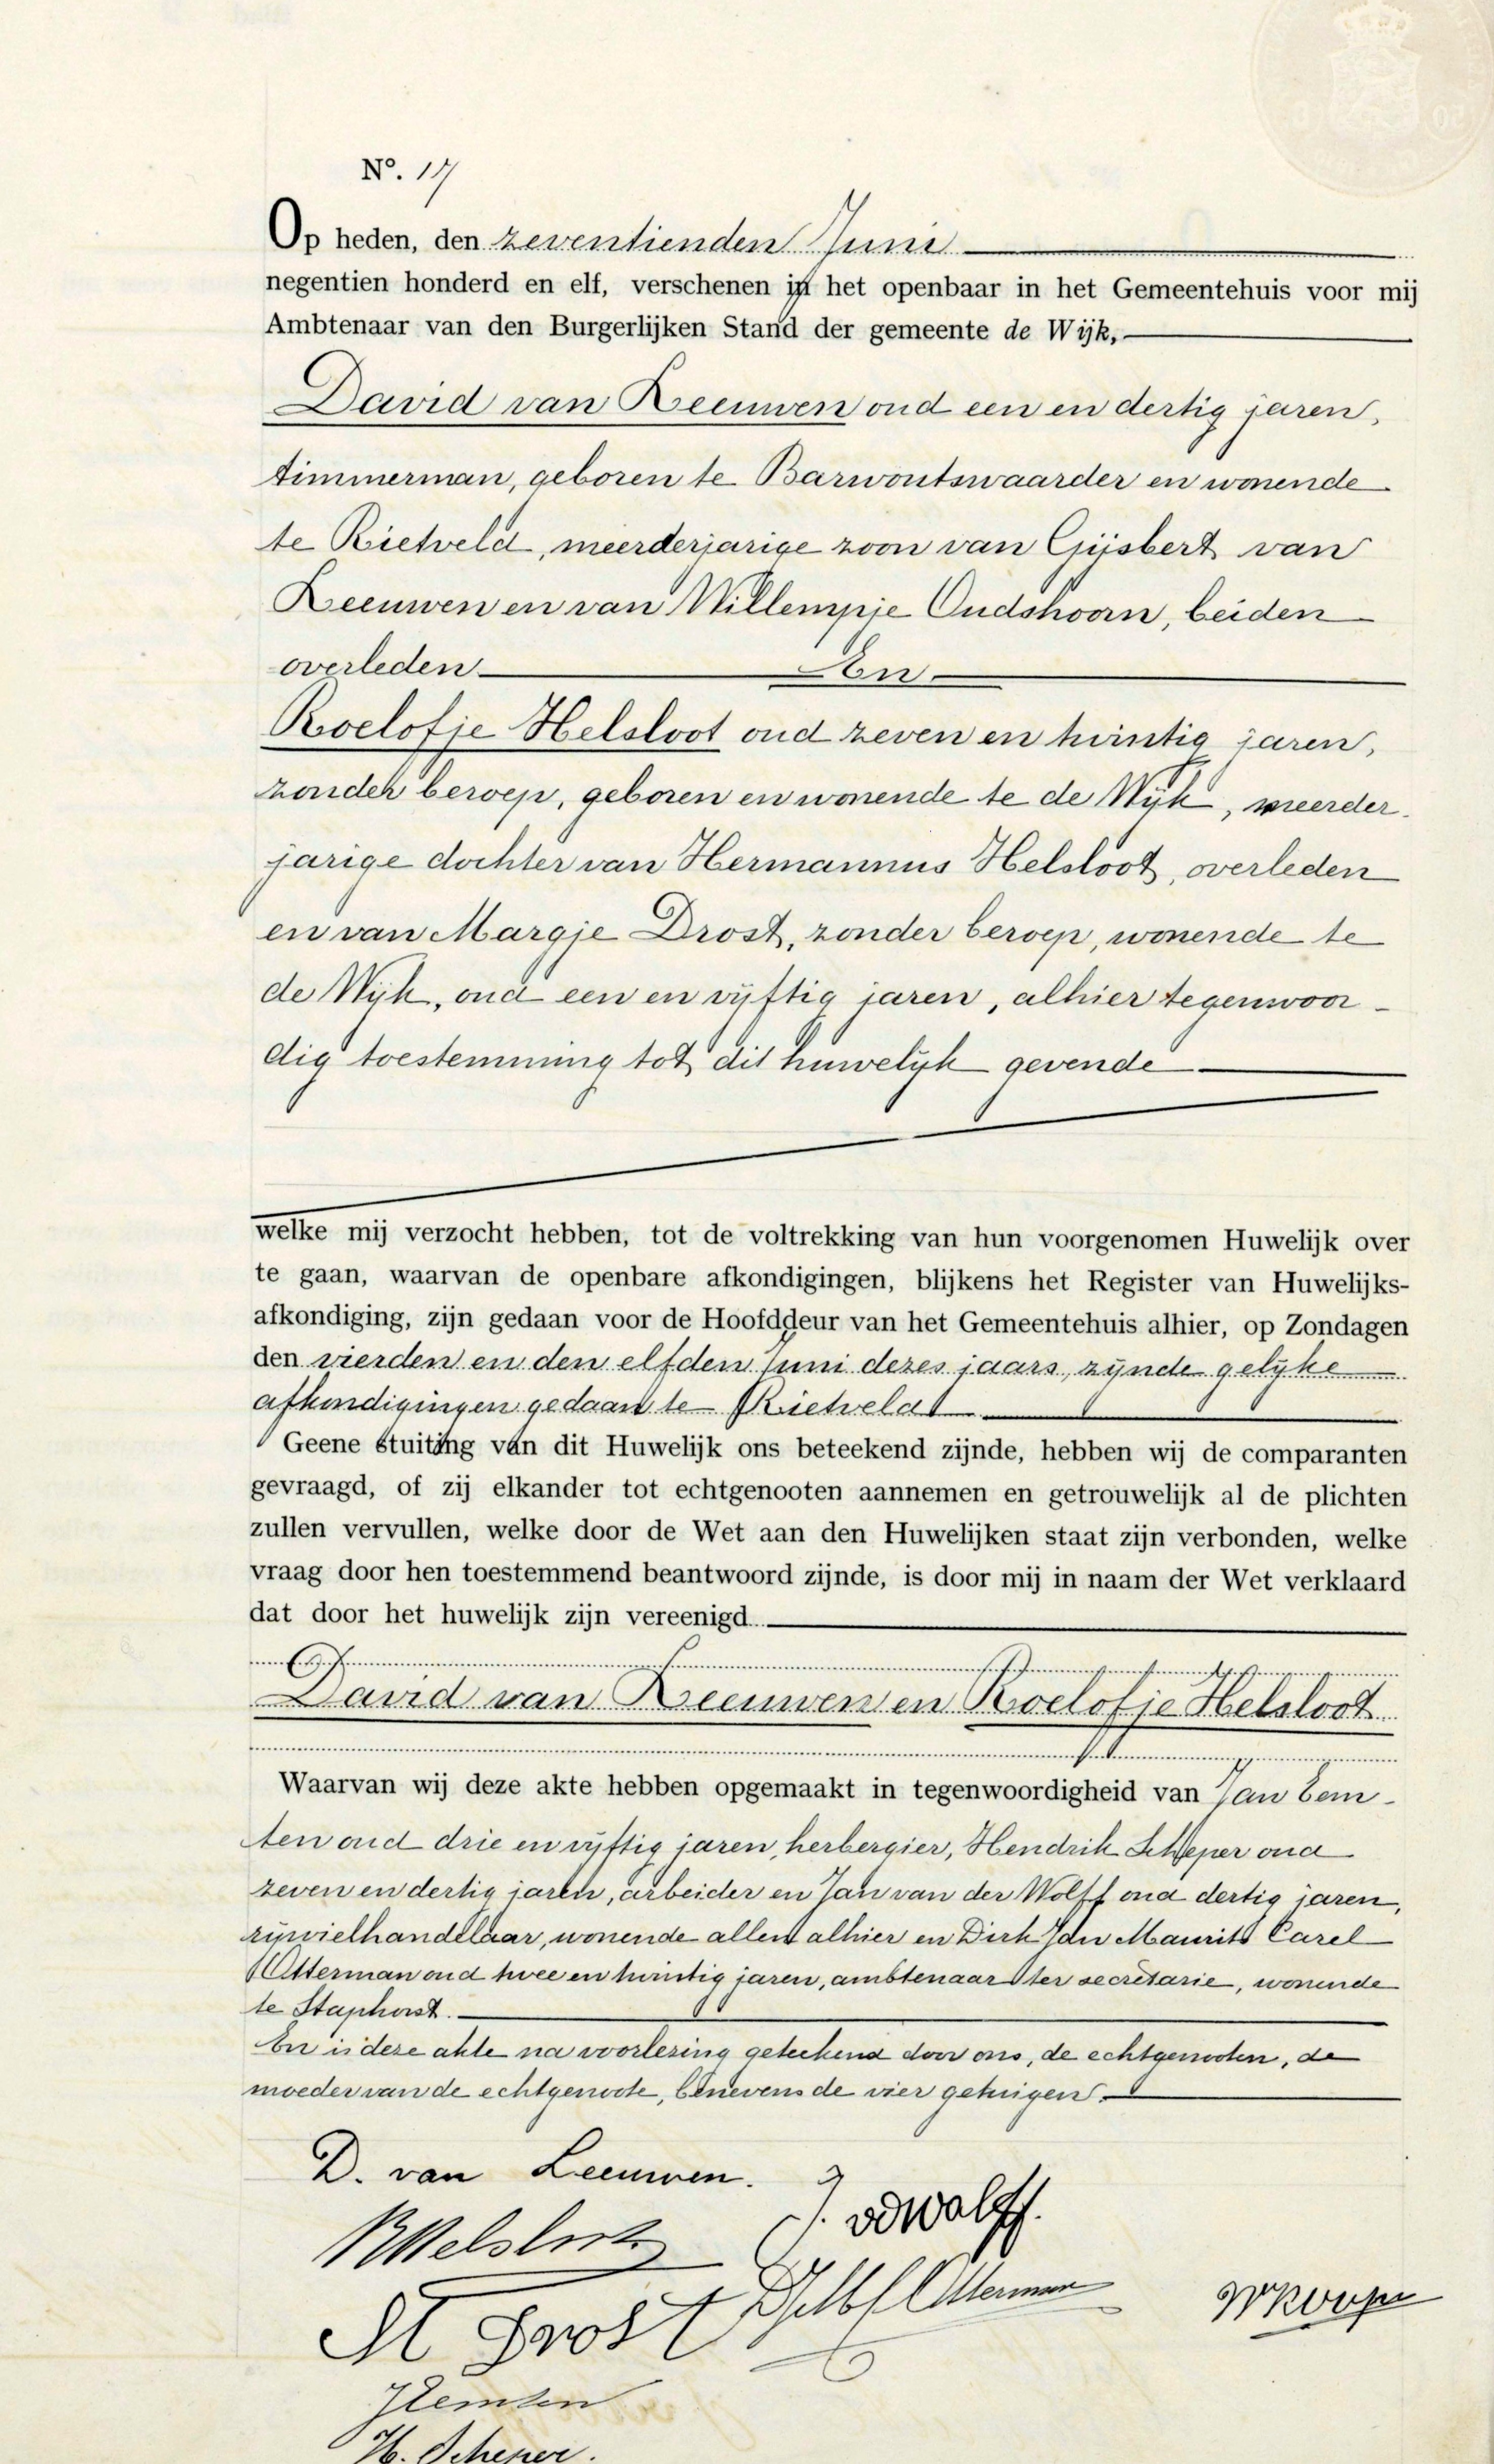 N°. 17
Op heden, den zeventienden Juni
negentien honderd en elf, verschenen in het openbaar in het Gemeentehuis voor mij
Ambtenaar van den Burgerlijken Stand der gemeente de Wijk,
David van Leeuwen oud een en dertig jaren,
timmerman, geboren te Barwoutswaarder en wonende
te Rietveld, meerderjarige zoon van Gijsbert van
Leeuwen en van Willempje Oudshoorn, beiden
overleden En
Roelofje Helsloot oud zeven en twintig jaren,
zonder beroep, geboren en wonende te de Wijk, meerder-
jarige dochter van Hermannus Helsloot, overleden
en van Margje Drost, zonder beroep, wonende te
de Wijk, oud een en vijftig jaren, alhier tegenwoor-
dig toestemming tot dit huwelijk gevende
welke mij verzocht hebben, tot de voltrekking van hun voorgenomen Huwelijk over
te gaan, waarvan de openbare afkondigingen, blijkens het Register van Huwelijks-
afkondiging, zijn gedaan voor de Hoofddeur van het Gemeentehuis alhier, op Zondagen
den vierden en den elfden Juni dezes jaars, zijnde gelijke
afkondigingen gedaan te Rietveld
Geene stuiting van dit Huwelijk ons beteekend zijnde, hebben wij de comparanten
gevraagd, of zij elkander tot echtgenooten aannemen en getrouwelijk al de plichten
zullen vervullen, welke door de Wet aan den Huwelijken staat zijn verbonden, welke
vraag door hen toestemmend beantwoord zijnde, is door mij in naam der Wet verklaard
dat door het huwelijk zijn vereenigd
David van Leeuwen en Roelofje Helsloot
Waarvan wij deze akte hebben opgemaakt in tegenwoordigheid van Jan Eem-
ten oud drie en vijftig jaren, herbergier, Hendrik Scheper oud
zeven en dertig jaren, arbeider en Jan van der Wolff oud dertig jaren,
rijwielhandelaar, wonende allen alhier en Dirk Jan Maurits Carel
Otterman oud twee en twintig jaren, ambtenaar ter secretarie, wonende
te Staphorst.
En is deze akte na voorlezing geteekend door ons, de echtgenooten, de
moeder van de echtgenoote, benevens de vier getuigen.
D. van Leeuwen.
J. vd Wolff.
R Helsloot
Otterman
M Drost
JEemten
H. Scheper.